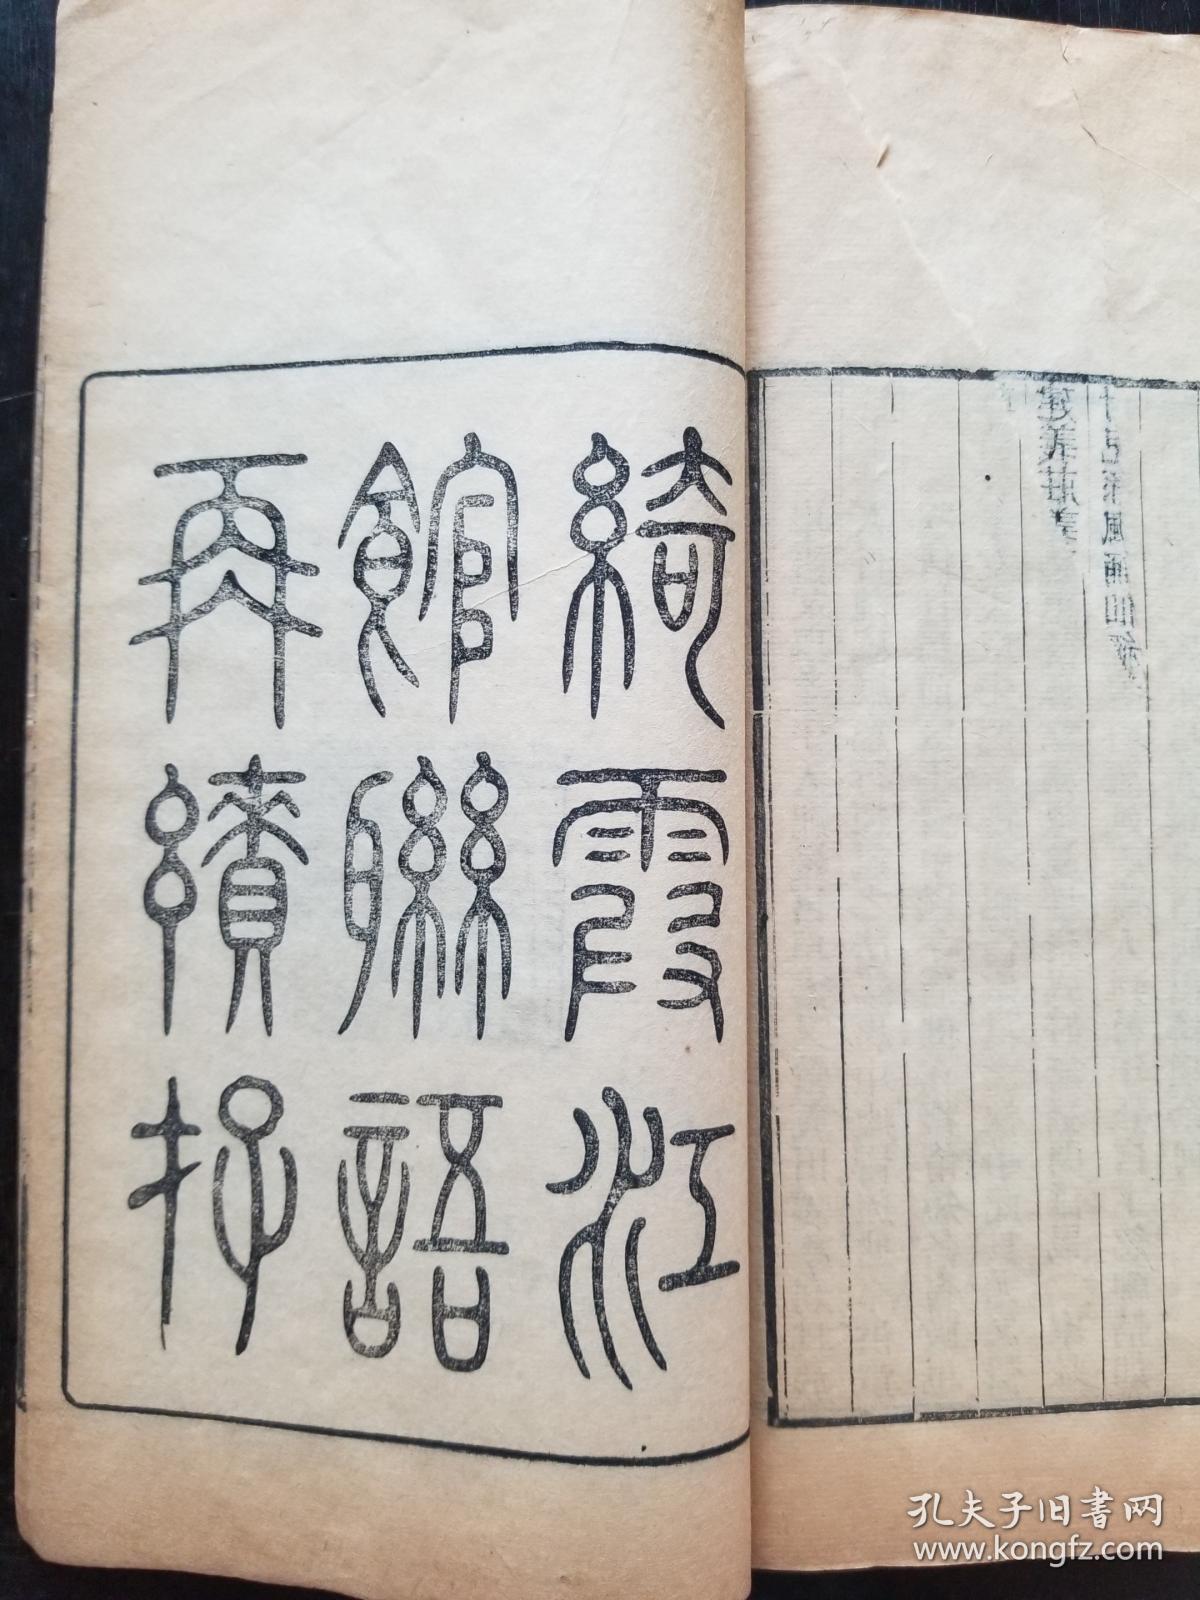 綺霞江
館聯語
再續存
孔夫子旧书网
www.kongfz.com